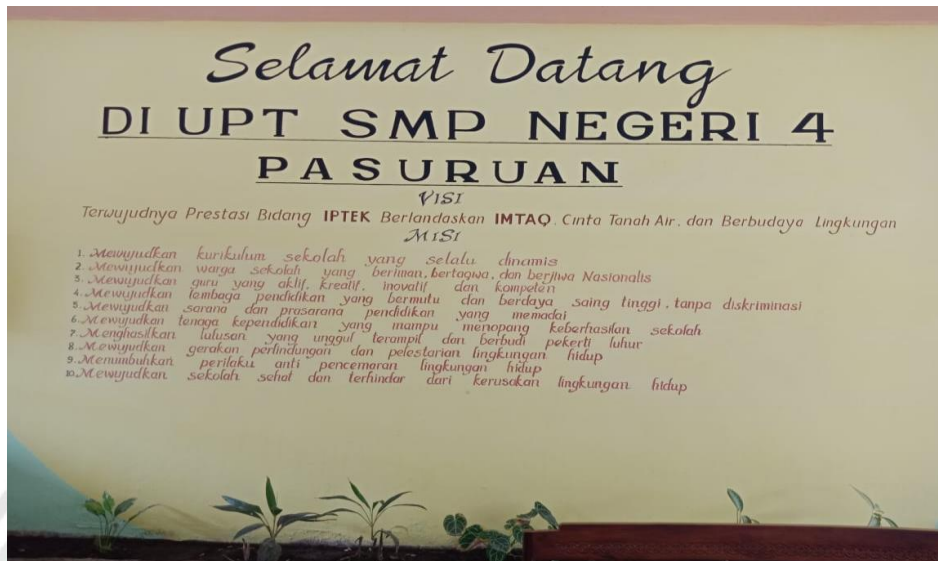 Selamat Datang
DI UPT SMP NEGERI 4
PASURUAN
VISI
Terwujudnya Prestasi Bidang IPTEK Berlandaskan IMTAQ, Cinta Tanah Air, dan Berbudaya Lingkungan
MISI
1. Mewujudkan kurikulum sekolah yang selalu dinamis
2. Mewujudkan warga sekolah yang beriman, bertaqwa, dan berjiwa Nasionalis
3. Mewujudkan guru yang aktif, kreatif, inovatif dan kompeten
4. Mewujudkan lembaga pendidikan yang bermutu dan berdaya saing tinggi, tanpa diskriminasi
5. Mewujudkan sarana dan prasarana pendidikan yang memadai
6. Mewujudkan tenaga kependidikan yang mampu menopang keberhasilan sekolah
7. Menghasilkan lulusan yang unggul terampil dan berbudi pekerti luhur
8. Mewujudkan gerakan perlindungan dan pelestarian lingkungan hidup
9. Menumbuhkan perilaku anti pencemaran lingkungan hidup
10. Mewujudkan sekolah sehat dan terhindar dari kerusakan lingkungan hidup